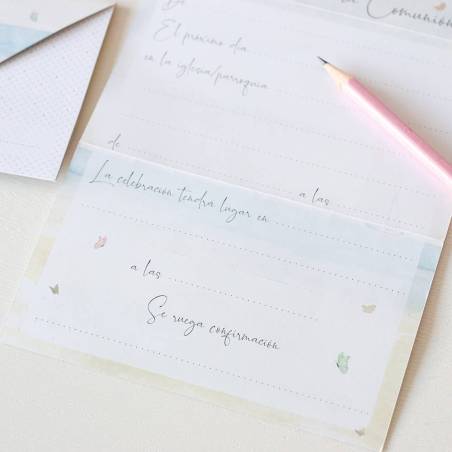 la Comunión
De
El próximo día
en la iglesia/parroquia
de
a las
La celebración tendra lugar en
a las
Se ruega confirmación